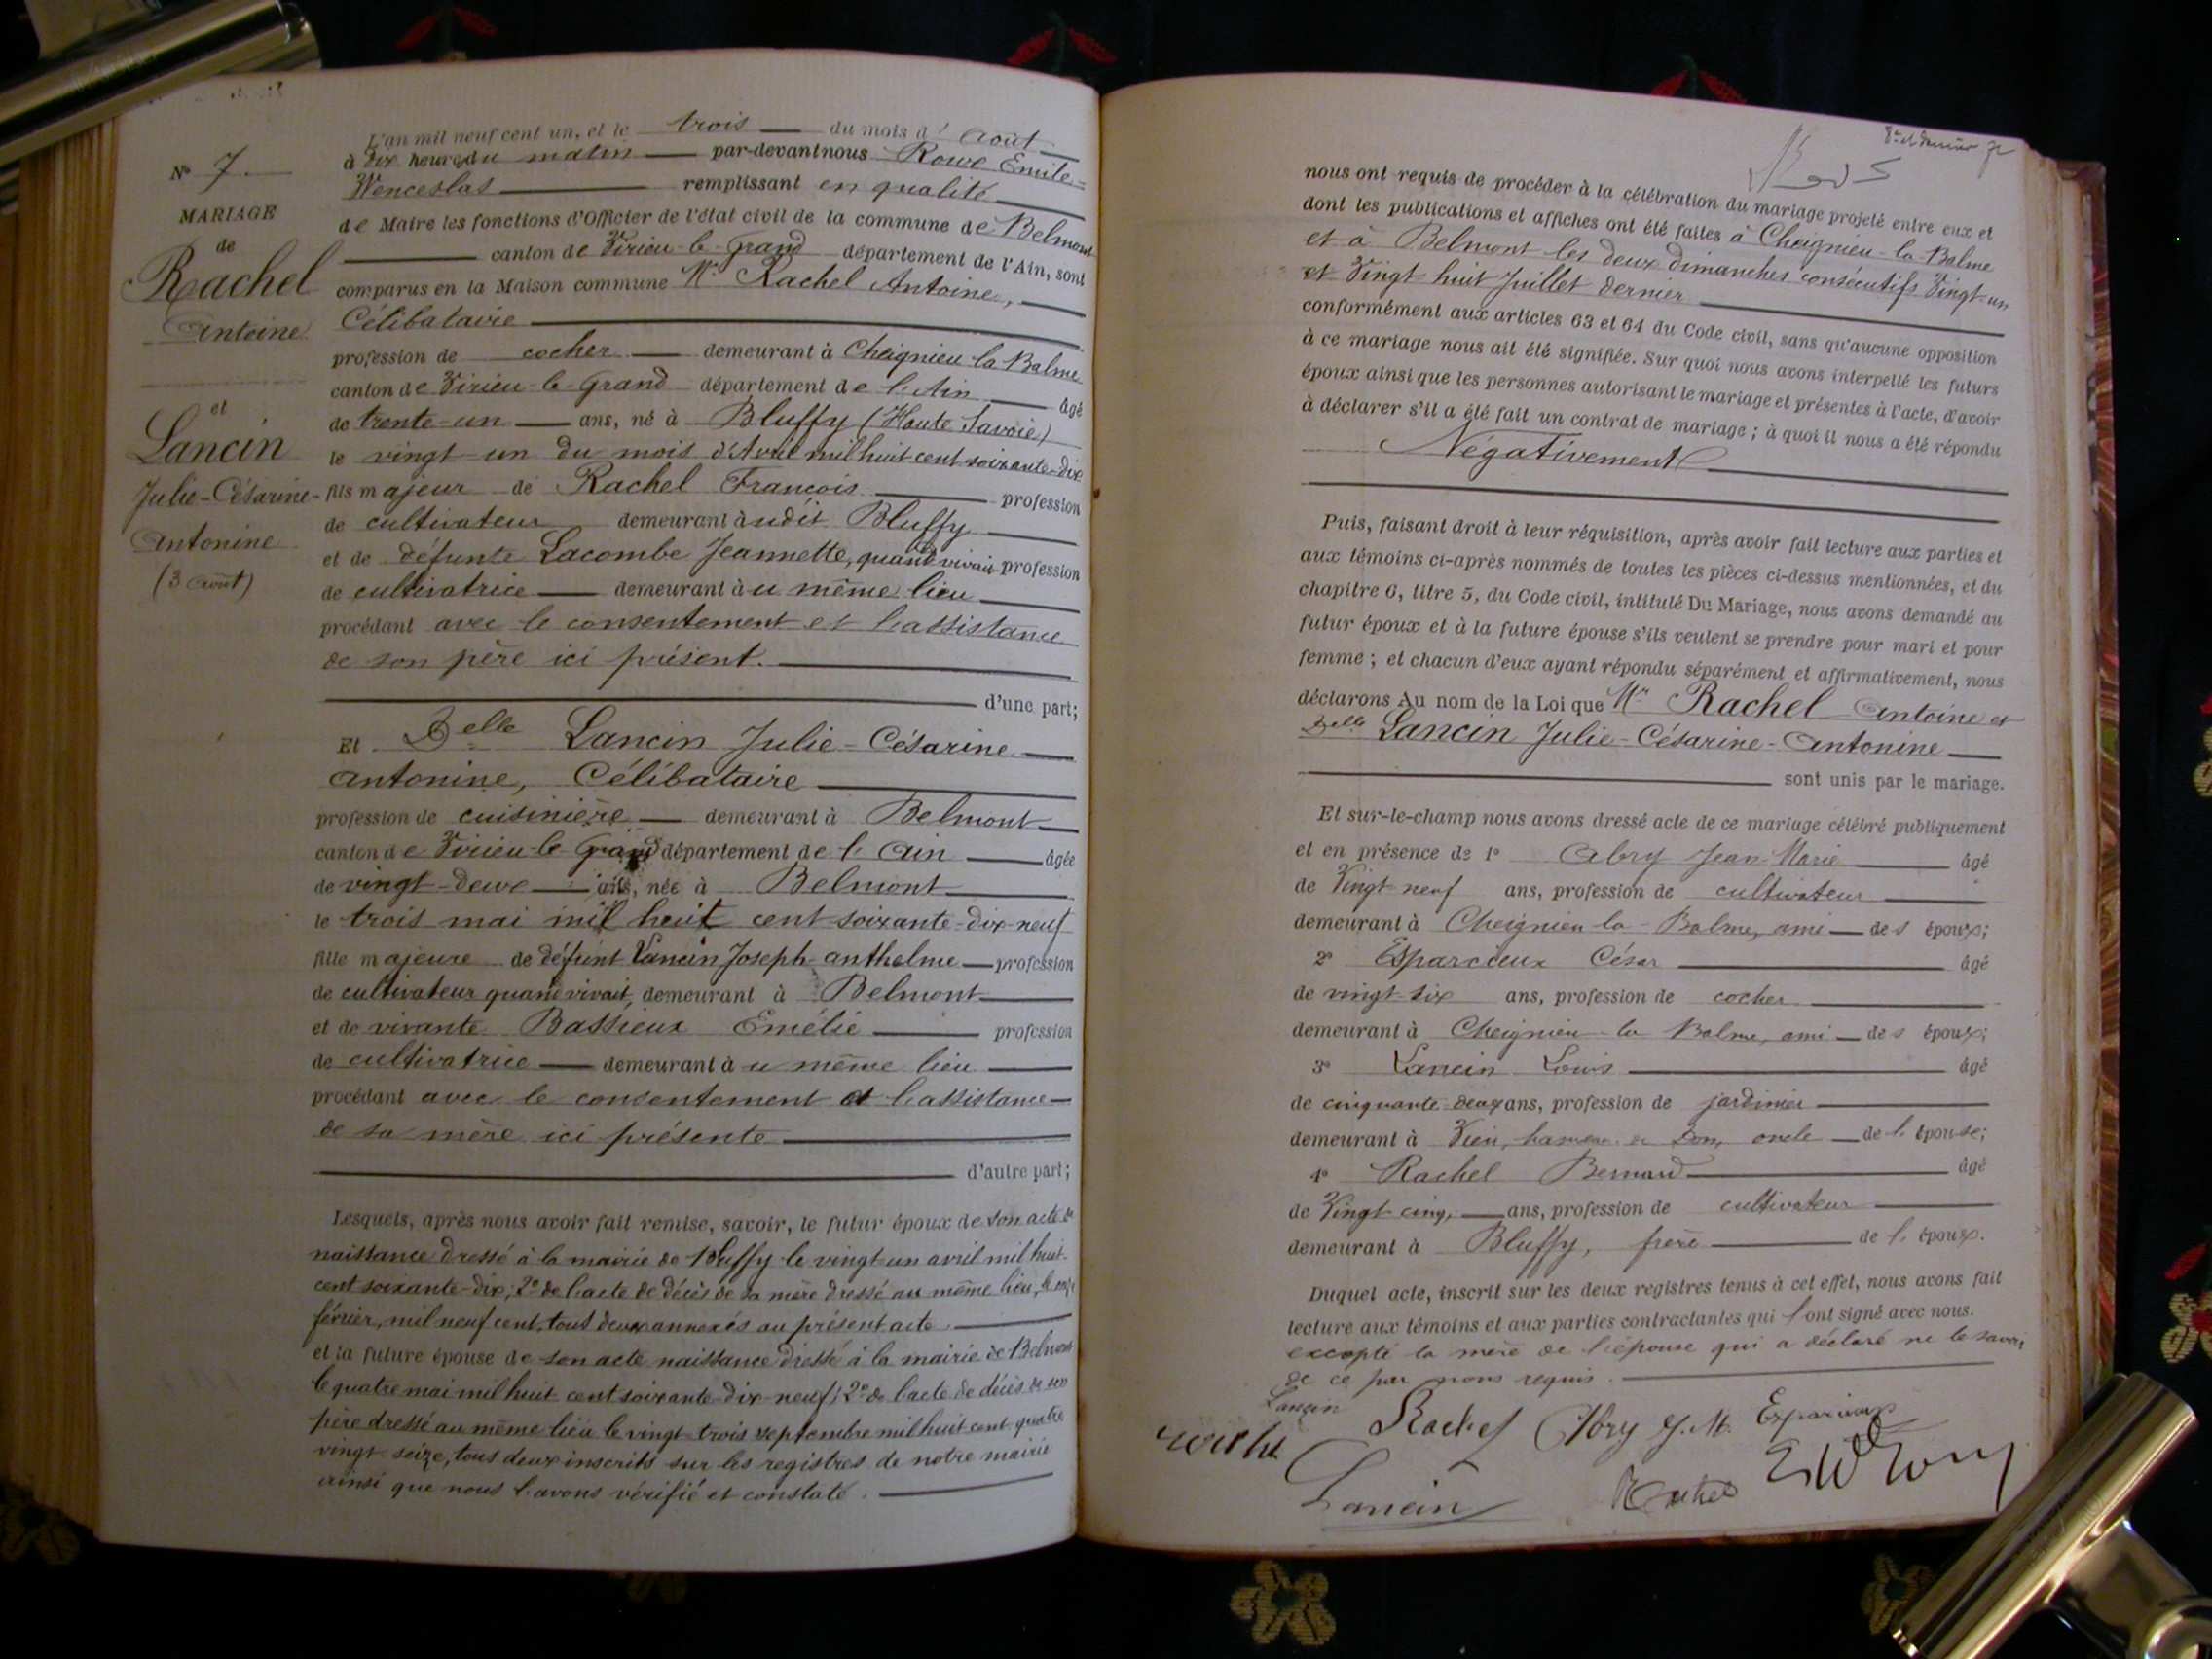 L'an mil neuf cent un, et le trois du mois d'Août
à dix heures du matin par-devant nous Roux Emile-
Wenceslas remplissant en qualité
de Maire les fonctions d'Officier de l'état civil de la commune de Belmont
canton de Virieu-le-Grand département de l'Ain, sont
comparus en la Maison commune Mr Rachel Antoine,
Célibataire
profession de cocher demeurant à Cheignieu la Balme
canton de Virieu-le-Grand département de l'Ain âgé
de trente-un ans, né à Bluffy (Haute Savoie)
le vingt-un du mois d'Avril mil huit cent soixante-dix
fils majeur de Rachel François profession
de cultivateur demeurant audit Bluffy
et de défunte Lacombe Jeannette, quand vivait profession
de cultivatrice demeurant au même lieu
procédant avec le consentement et l'assistance
de son père ici présent.
d'une part;
Et Delle Lancin Julie-Césarine
Antonine, Célibataire
profession de cuisinière demeurant à Belmont
canton de Virieu-le-Grand département de l'Ain âgée
de vingt-deux ans, née à Belmont
le trois mai mil huit cent soixante-dix-neuf
fille majeure de défunt Lancin Joseph-anthelme profession
de cultivateur quand vivait, demeurant à Belmont
et de vivante Bassieux Emélie profession
de cultivatrice demeurant au même lieu
procédant avec le consentement et l'assistance
de sa mère ici présente
d'autre part;
Lesquels, après nous avoir fait remise, savoir, le futur époux de son acte de
naissance dressé à la mairie de Bluffy le vingt un avril mil huit-
cent soixante-dix; 2° de l'acte de décès de sa mère dressé au même lieu, le onze
février, mil neuf cent, tous deux annexés au présent acte.
et la future épouse de son acte naissance dressé à la mairie de Belmont
le quatre mai mil huit cent soixante-dix-neuf; 2° de l'acte de décès de son
père dressé au même lieu le vingt-trois septembre mil huit cent quatre
vingt-seize, tous deux inscrits sur les registres de notre mairie
ainsi que nous l'avons vérifié et constaté.
N° 7
MARIAGE
de
Rachel
Antoine
et
Lancin
Julie-Césarine-
Antonine
(3 août)
8e et dernier
nous ont requis de procéder à la célébration du mariage projeté entre eux et
dont les publications et affiches ont été faites à Cheignieu-la-Balme
et à Belmont les deux dimanches consécutifs Vingt-un
et Vingt huit Juillet dernier
conformément aux articles 63 et 64 du Code civil, sans qu'aucune opposition
à ce mariage nous ait été signifiée. Sur quoi nous avons interpellé les futurs
époux ainsi que les personnes autorisant le mariage et présentes à l'acte, d'avoir
à déclarer s'il a été fait un contrat de mariage; à quoi il nous a été répondu
Négativement
Puis, faisant droit à leur réquisition, après avoir fait lecture aux parties et
aux témoins ci-après nommés de toutes les pièces ci-dessus mentionnées, et du
chapitre 6, titre 5, du Code civil, intitulé Du Mariage, nous avons demandé au
futur époux et à la future épouse s'ils veulent se prendre pour mari et pour
femme; et chacun d'eux ayant répondu séparément et affirmativement, nous
déclarons Au nom de la Loi que Mr Rachel Antoine et
Delle Lancin Julie-Césarine-Antonine
sont unis par le mariage.
Et sur-le-champ nous avons dressé acte de ce mariage célébré publiquement
et en présence de 1° Abry Jean-Marie âgé
de Vingt-neuf ans, profession de cultivateur
demeurant à Cheignieu-la-Balme, ami des époux;
2° Esparcieux César âgé
de vingt-six ans, profession de cocher
demeurant à Cheignieu-la Balme, ami des époux;
3° Lancin Louis âgé
de cinquante-deux ans, profession de jardinier
demeurant à Vieu, hameau de Don, oncle de l'épouse;
4° Rachel Bernard âgé
de Vingt-cinq ans, profession de cultivateur
demeurant à Bluffy, frère de l'époux.
Duquel acte, inscrit sur les deux registres tenus à cet effet, nous avons fait
lecture aux témoins et aux parties contractantes qui l'ont signé avec nous.
excepté la mère de l'épouse qui a déclaré ne le savoir
de ce par nous requis.
Lancin
Rachel Abry J. M. Esparcieux
Lancin Rachel